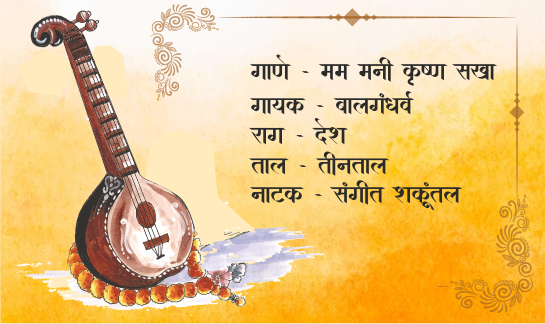 गाणे - मम मनी कृष्ण सखा
गायक - वालगंधर्व
राग - देश
ताल - तीनताल
नाटक - संगीत शकूंतल